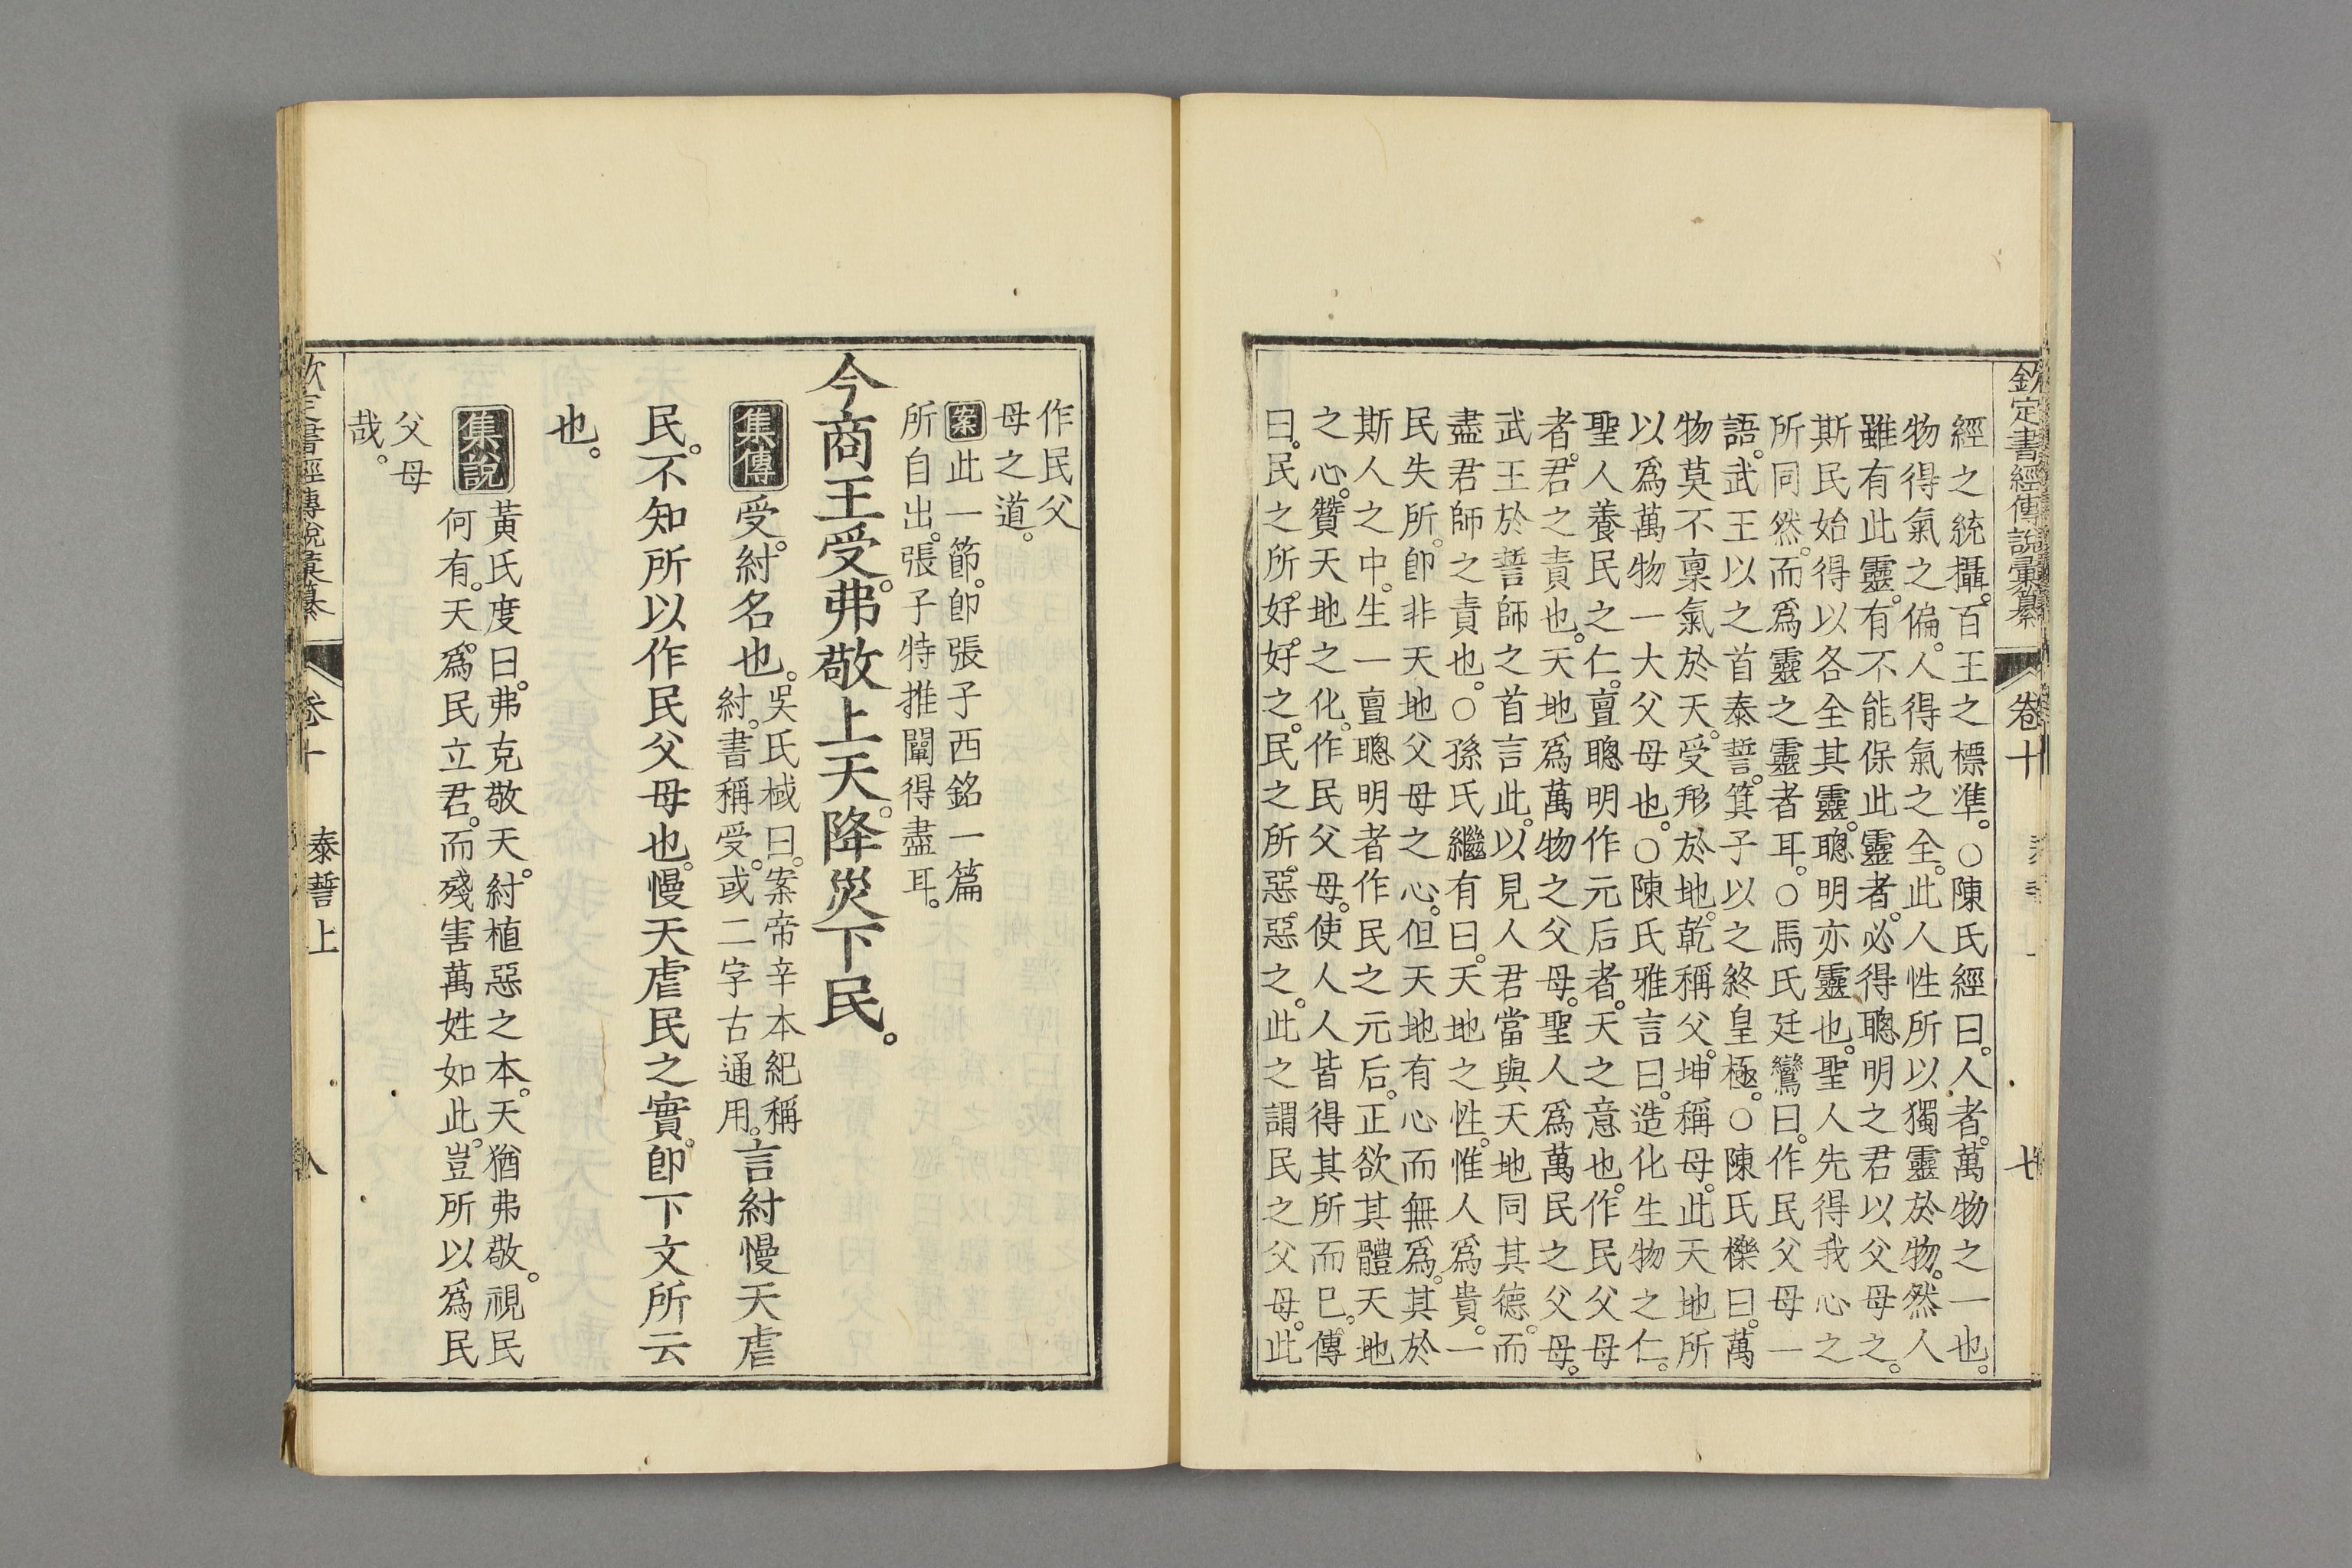 欽定書經傳說彙纂 卷十 七
經之統攝。百王之標準。○陳氏經曰。人者。萬物之一也。
物得氣之偏。人得氣之全。此人性所以獨靈於物。然人
雖有此靈。有不能保此靈者。必得聰明之君以父母之。
斯民始得以各全其靈。聰明亦靈也。聖人先得我心之
所同然。而爲靈之靈者耳。○馬氏廷鸞曰。作民父母一
語。武王以之首泰誓。箕子以之終皇極。○陳氏櫟曰。萬
物莫不稟氣於天。受形於地。乾稱父。坤稱母。此天地所
以爲萬物一大父母也。○陳氏雅言曰。造化生物之仁。
聖人養民之仁。亶聰明作元后者。天之意也。作民父母
者。君之責也。天地爲萬物之父母。聖人爲萬民之父母。
武王於誓師之首言此。以見人君當與天地同其德。而
盡君師之責也。○孫氏繼有曰。天地之性。惟人爲貴。一
民失所。卽非天地父母之心。但天地有心而無爲。其於
斯人之中。生一亶聰明者作民之元后。正欲其體天地
之心。贊天地之化。作民父母。使人人皆得其所而已。傳
曰。民之所好。好之。民之所惡。惡之。此之謂民之父母。此
作民父
母之道。
案此一節。卽張子西銘一篇
所自出。張子特推闡得盡耳。
今商王受。弗敬上天。降災下民。
集傳 受。紂名也。吳氏棫曰。案帝辛本紀稱
紂。書稱受。或二字古通用。言紂慢天虐
民。不知所以作民父母也。慢天虐民之實。卽下文所云
也。
集說 黃氏度曰。弗克敬天。紂植惡之本。天猶弗敬。視民
何有。天爲民立君。而殘害萬姓如此。豈所以爲民
父母
哉。
欽定書經傳說彙纂 卷十 泰誓上 八